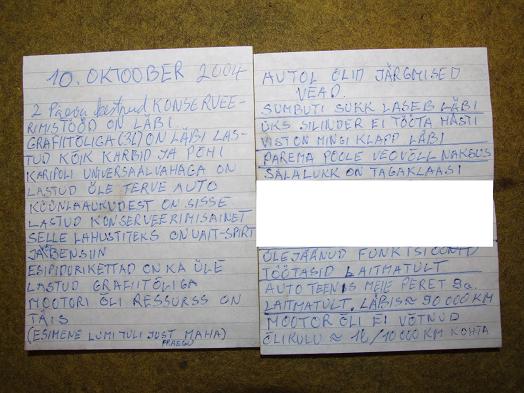 10. OKTOOBER 2004
2 Päeva kestnud KONSERVEE-
RIMISTÖÖD ON LÄBI.
GRAFIITÕLIGA (3L) ON LÄBI LAS-
TUD KÕIK KARBID JA PÕHI
KARIPOLI UNIVERSAALVAHAGA ON
LASTUD ÜLE TERVE AUTO
KÜÜNLAAUKUDEST ON SISSE
LASTUD KONSERVEERIMISAINET
SELLE LAHUSTITEKS ON VAIT-SPIRT
JA BENSIIN
ESIPIDURIKETTAD ON KA ÜLE
LASTUD GRAFIITÕLIGA
MOOTORI ÕLI RESSURSS ON
TÄIS
(ESIMENE LUMI TULI JUST MAHA)
PRAEGU
AUTOL OLID JÄRGMISED
VEAD
SUMBUTI SUKK LASEB LÄBI
ÜKS SILINDER EI TÖÖTA HÄSTI
VIST ON MINGI KLAPP LÄBI
PAREMA POOLE VEOVÕLL NAKSUS
SÄLALUKK ON TAGAKLAASI
ÜLEJÄÄNUD FUNKTSIOONID
TÖÖTASID LAITMATULT
AUTO TEENIS MEIE PERET 9a.
LAITMATULT. LÄBIS ≈ 90 000 KM
MOOTOR ÕLI EI VÕTNUD
ÕLIKULU ≈ 1L/10000 KM KOHTA